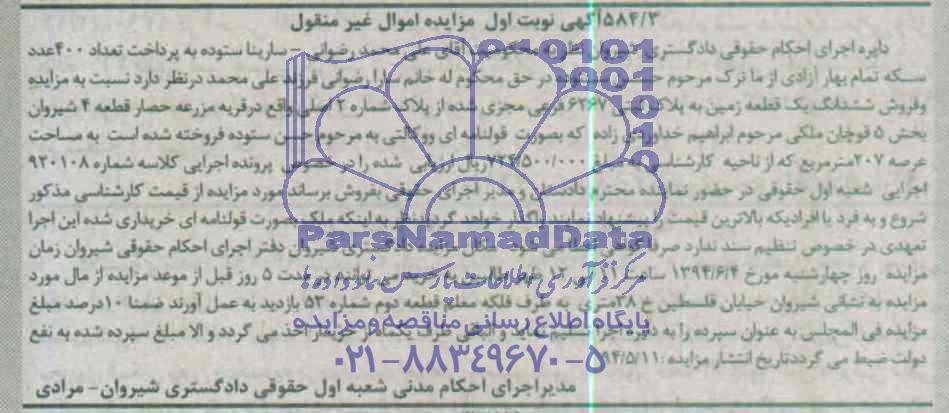 ۵۸۴/۳آگهی نوبت اول مزایده اموال غیر منقول
دایره اجرای احکام حقوقی دادگستری شیروان آقای علی محمد رضوانی - سارینا ستوده به پرداخت تعداد ۴۰۰عدد
سکه تمام بهار آزادی از ما ترک مرحوم در حق محکوم له خانم سارا رضوانی فرزند علی محمد درنظر دارد نسبت به مزایده
وفروش ششدانگ یک قطعه زمین به پلاک ۶۲۶۷ فرعی مجزی شده از پلاک شماره ۲ اصلی واقع درقریه مزرعه حصار قطعه ۴ شیروان
بخش ۵ قوچان ملکی مرحوم ابراهیم زاده که بصورت قولنامه ای ووکالتی به مرحوم حسن ستوده فروخته شده است به مساحت
عرصه ۲۰۷مترمربع که از ناحیه کارشناسی ۷۲۴/۵۰۰/۰۰۰ریال شده را در پرونده اجرایی کلاسه شماره ۹۲۰۱۰۸
اجرایی شعبه اول حقوقی در حضور نماینده محترم دادستان و مدیر اجرای حقوقی بفروش برساند مورد مزایده از قیمت کارشناسی مذکور
شروع و به فرد یا افرادیکه بالاترین قیمت را پیشنهاد نمایند واگذار خواهد گردید نظر به اینکه ملک بصورت قولنامه ای خریداری شده این اجرا
تعهدی در خصوص تنظیم سند ندارد شیروان دفتر اجرای احکام حقوقی شیروان زمان
مزایده روز چهارشنبه مورخ ۱۳۹۴/۶/۴ ساعت مدت ۵ روز قبل از موعد مزایده از مال مورد
مزایده به نشانی شیروان خیابان فلسطین خ ۳۸متری به طرف فلکه معلم قطعه دوم شماره ۵۳ بازدید به عمل آورند ضمنا ۱۰درصد مبلغ
مزایده فی المجلس به عنوان سپرده را به دایره اجرا تسلیم نماید و الباقی ظرف یکماه از خریدار اخذ می گردد و الا مبلغ سپرده شده به نفع
دولت ضبط می گرددتاریخ انتشار مزایده :۹۴/۵/۱۱
مدیراجرای احکام مدنی شعبه اول حقوقی دادگستری شیروان- مرادی
ParsNamadData
مرکز فرآوری اطلاعات پارس نماد داده ها
پایگاه اطلاع رسانی مناقصه و مزایده
۰۲۱-۸۸۳۴۹۶۷۰-۵